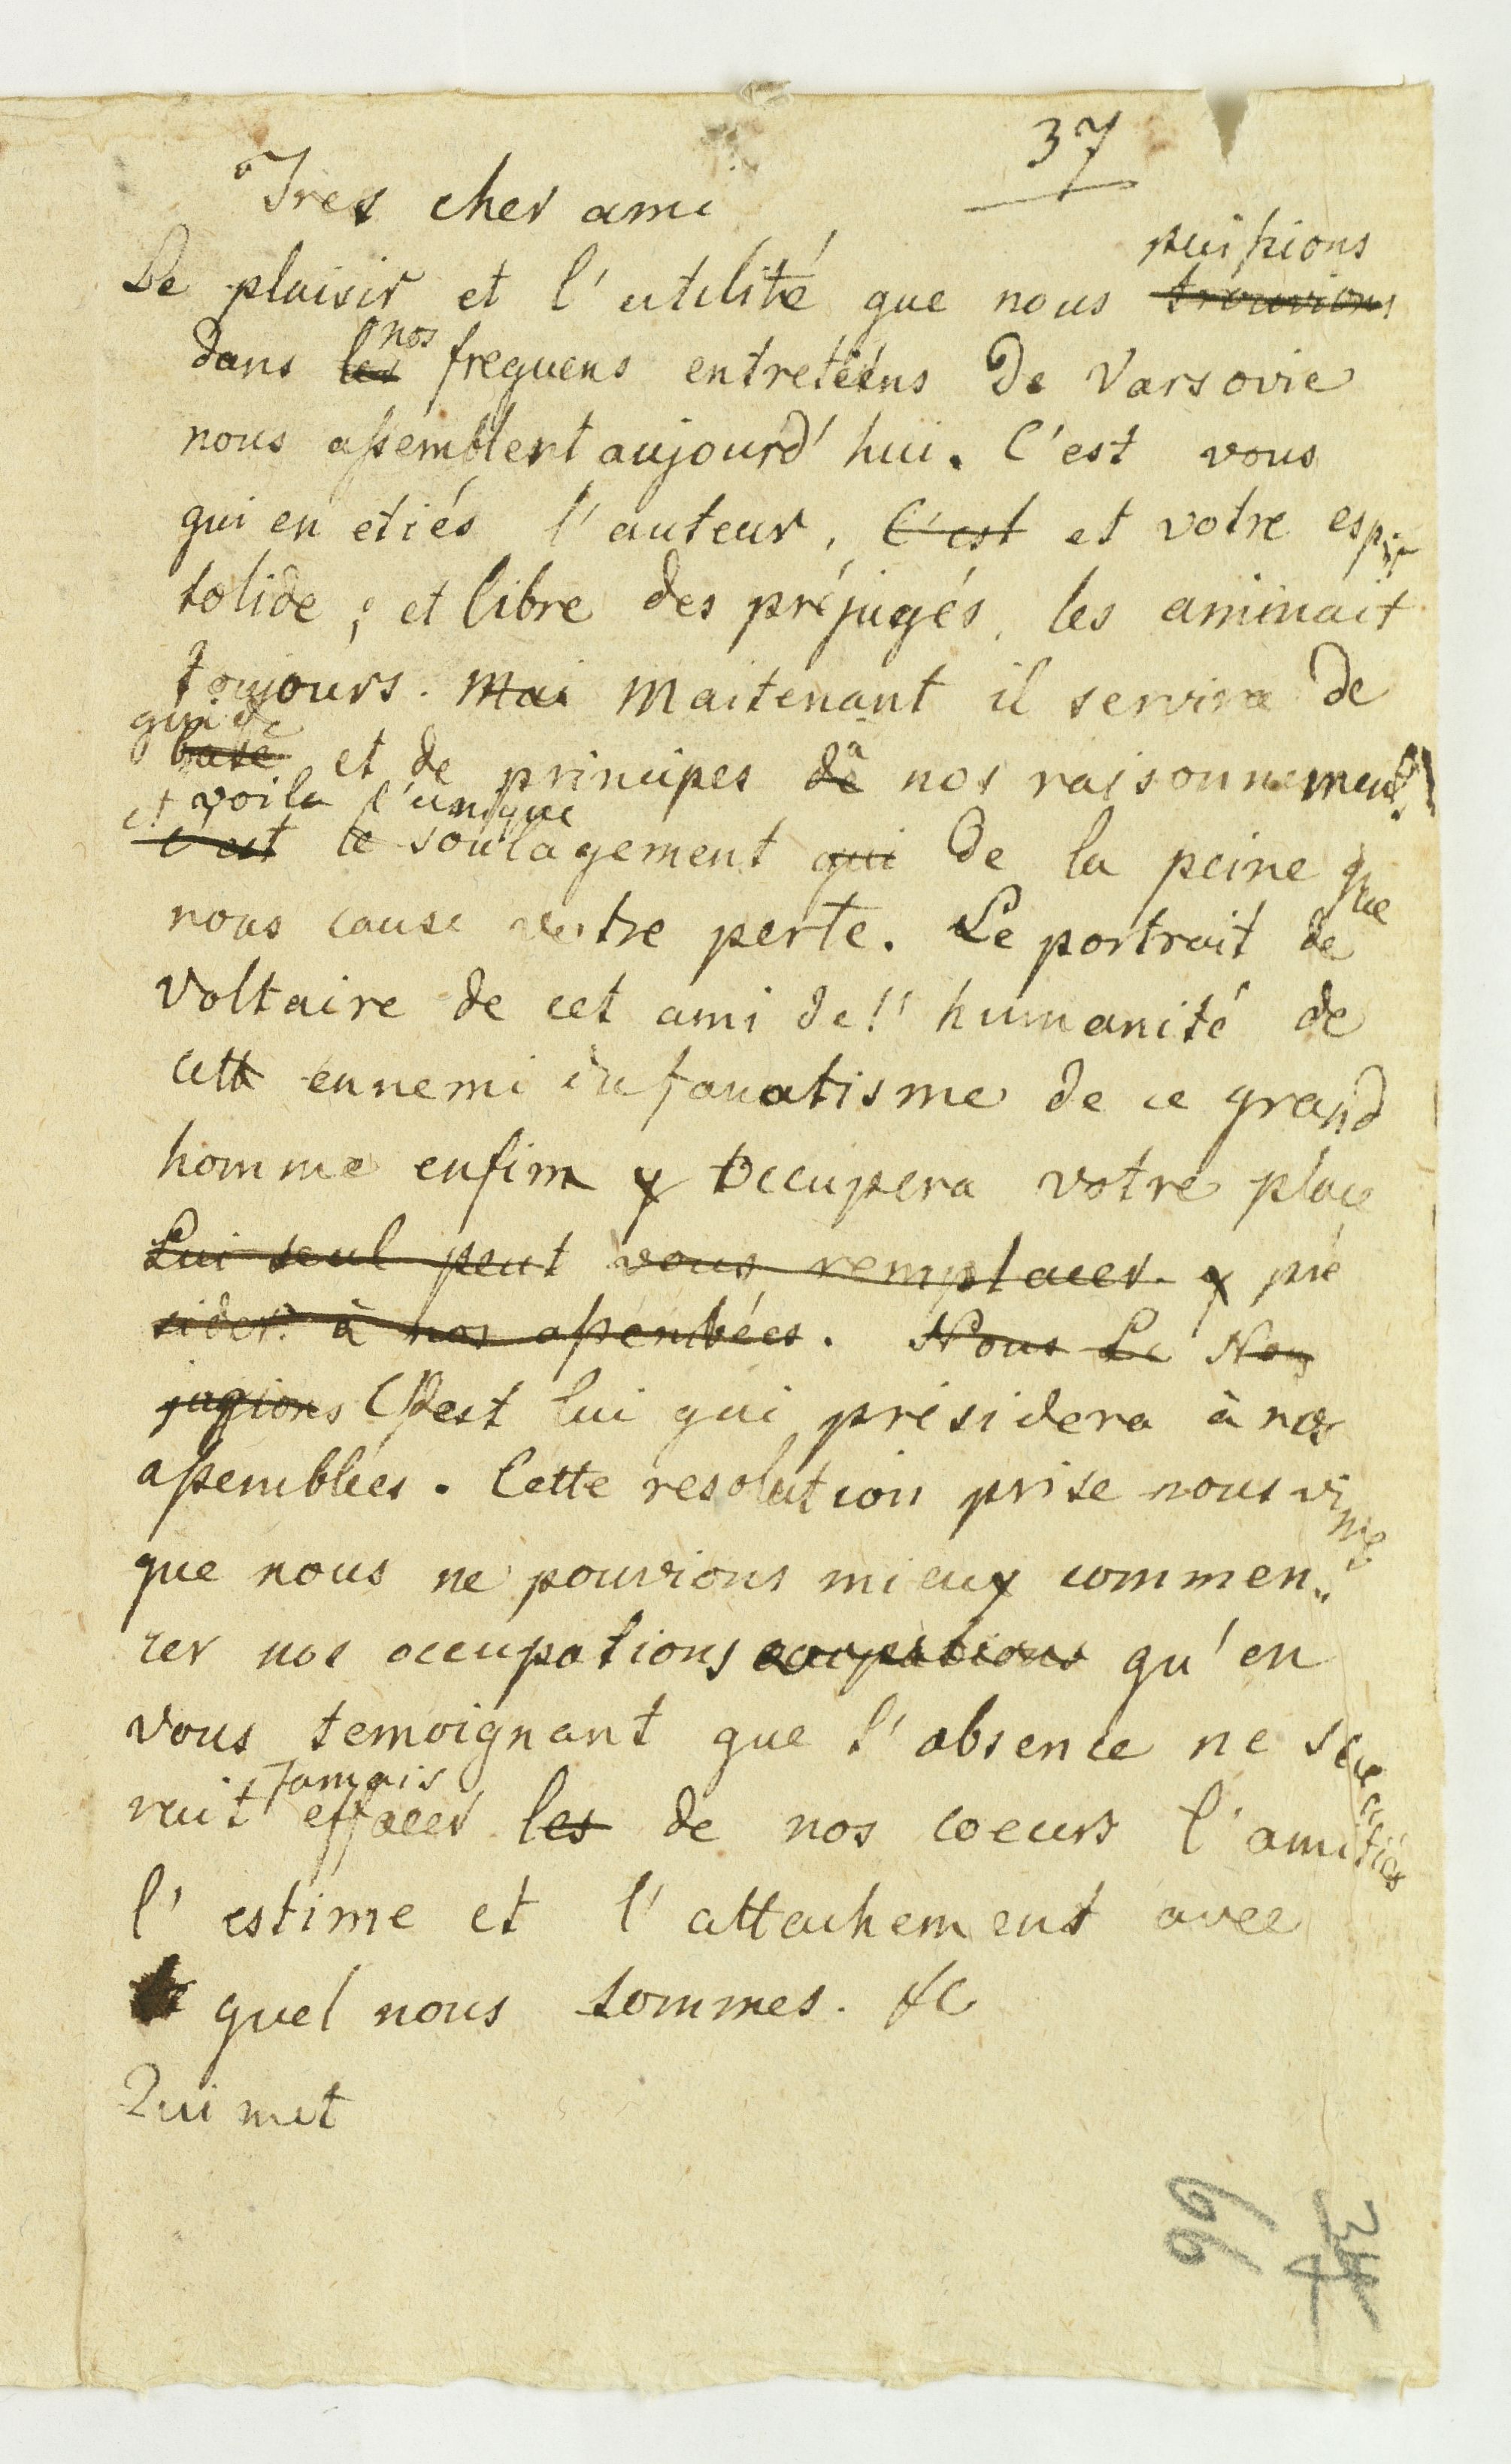 37
Tres cher ami
puissions
Le plaisir et l'utilité que nous trouvions
nos
dans les frequens entretiens de Varsovie
nous assemblent aujourd'hui. C'est vous
qui en etiés l'auteur, C'est et votre esprit
solide, et libre des préjugés, les animait
toujours. Mai Maitenant il servira de
guide
base et de principes de à nos raisonnemens!
et voila l'unique
c'est le soulagement qui de la peine que
nous cause votre perte. Le portrait de
Voltaire de cet ami de l'humanité de
cett ennemi du fanatisme de ce grand
homme enfin y occupera votre place
Lui seul peut vous remplacer y pré
sider à nos assembées. Nous Le Nous
jugions C'est lui qui présidera à nos
assemblées. Cette resolution prise nous vimes
que nous ne pouvions mieux commen„
cer nos occupations occupations qu'en
vous temoignant que l'absence ne scau
jamais
rait effacer les de nos coeurs l'amitiés
l'estime et l'attachement avec
le quel nous sommes. &c
Qui met
66
34
4